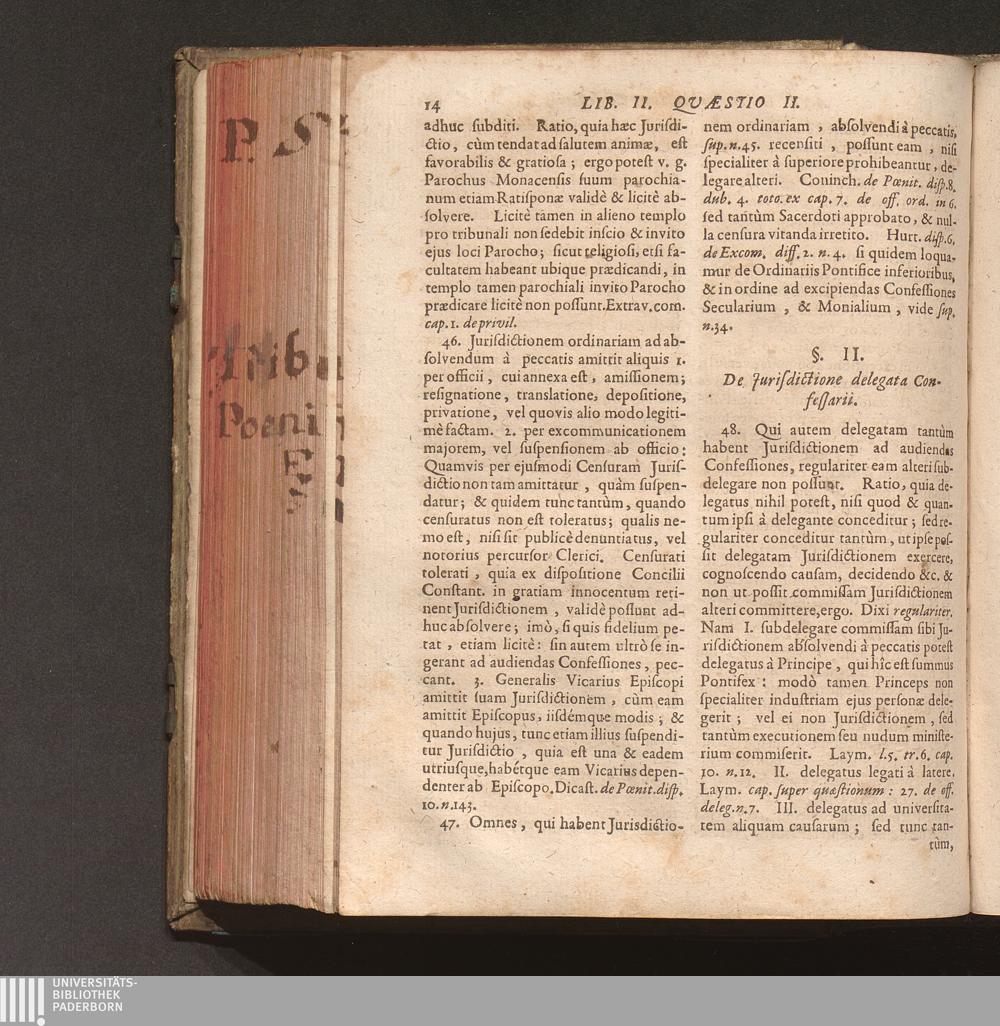 P. S
Tribu
Poeni
14 LIB. II. QVÆSTIO II.
adhuc ſubditi. Ratio, quia hæc Juriſdi-
ctio, cùm tendat ad ſalutem animæ, eſt
favorabilis & gratioſa; ergo poteſt v. g.
Parochus Monacenſis ſuum parochia-
num etiam Ratiſponæ validè & licitè ab-
ſolvere. Licitè tamen in alieno templo
pro tribunali non ſedebit inſcio & invito
ejus loci Parocho; ſicut religioſi, etſi fa-
cultatem habeant ubique prædicandi, in
templo tamen parochiali invito Parocho
prædicare licitè non poſſunt. Extrav. com.
cap. 1. de privil.
46. Juriſdictionem ordinariam ad ab-
ſolvendum à peccatis amittit aliquis 1.
per officii, cui annexa eſt, amiſſionem;
reſignatione, translatione, depoſitione,
privatione, vel quovis alio modo legiti-
mè factam. 2. per excommunicationem
majorem, vel ſuſpenſionem ab officio:
Quamvis per ejuſmodi Cenſuram Juriſ-
dictio non tam amittatur, quàm ſuſpen-
datur; & quidem tunc tantùm, quando
cenſuratus non eſt toleratus; qualis ne-
mo eſt, niſi ſit publicè denuntiatus, vel
notorius percuſſor Clerici. Cenſurati
tolerati, quia ex diſpoſitione Concilii
Conſtant. in gratiam innocentum reti-
nent Juriſdictionem, validè poſſunt ad-
huc abſolvere; imò, ſi quis fidelium pe-
tat, etiam licitè: ſin autem ultrò ſe in-
gerant ad audiendas Confeſſiones, pec-
cant. 3. Generalis Vicarius Epiſcopi
amittit ſuam Juriſdictionem, cùm eam
amittit Epiſcopus, iiſdémque modis; &
quando hujus, tunc etiam illius ſuſpendi-
tur Juriſdictio, quia eſt una & eadem
utriuſque, habétque eam Vicarius depen-
denter ab Epiſcopo. Dicaſt. de Pœnit. diſp.
10. n. 143.
47. Omnes, qui habent Jurisdictio-
nem ordinariam, abſolvendi à peccatis,
ſup. n. 45. recenſiti, poſſunt eam, niſi
ſpecialiter à ſuperiore prohibeantur, de-
legare alteri. Coninch. de Pœnit. diſp. 8.
dub. 4. toto. ex cap. 7. de off. ord. in 6.
ſed tantùm Sacerdoti approbato, & nul-
la cenſura vitanda irretito. Hurt. diſp. 6.
de Excom. diff. 2. n. 4. ſi quidem loqua-
mur de Ordinariis Pontifice inferioribus,
& in ordine ad excipiendas Confeſſiones
Secularium, & Monialium, vide ſup.
n. 34.
§. II.
De Juriſdictione delegata Con-
feſſarii.
48. Qui autem delegatam tantùm
habent Juriſdictionem ad audiendas
Confeſſiones, regulariter eam alteri ſub-
delegare non poſſunt. Ratio, quia de-
legatus nihil poteſt, niſi quod & quan-
tum ipſi à delegante conceditur; ſed re-
gulariter conceditur tantùm, ut ipſe poſ-
ſit delegatam Juriſdictionem exercere,
cognoſcendo cauſam, decidendo &c. &
non ut poſſit commiſſam Juriſdictionem
alteri committere, ergo. Dixi regulariter.
Nam I. ſubdelegare commiſſam ſibi Ju-
riſdictionem abſolvendi à peccatis poteſt
delegatus à Principe, qui hîc eſt ſummus
Pontifex: modò tamen Princeps non
ſpecialiter induſtriam ejus perſonæ dele-
gerit; vel ei non Juriſdictionem, ſed
tantùm executionem ſeu nudum miniſte-
rium commiſerit. Laym. l. 5. tr. 6. cap.
10. n. 12. II. delegatus legati à latere.
Laym. cap. ſuper quæſtionum: 27. de off.
deleg. n. 7. III. delegatus ad univerſita-
tem aliquam cauſarum; ſed tunc tan-
tùm,
UNIVERSITÄTS-
BIBLIOTHEK
PADERBORN